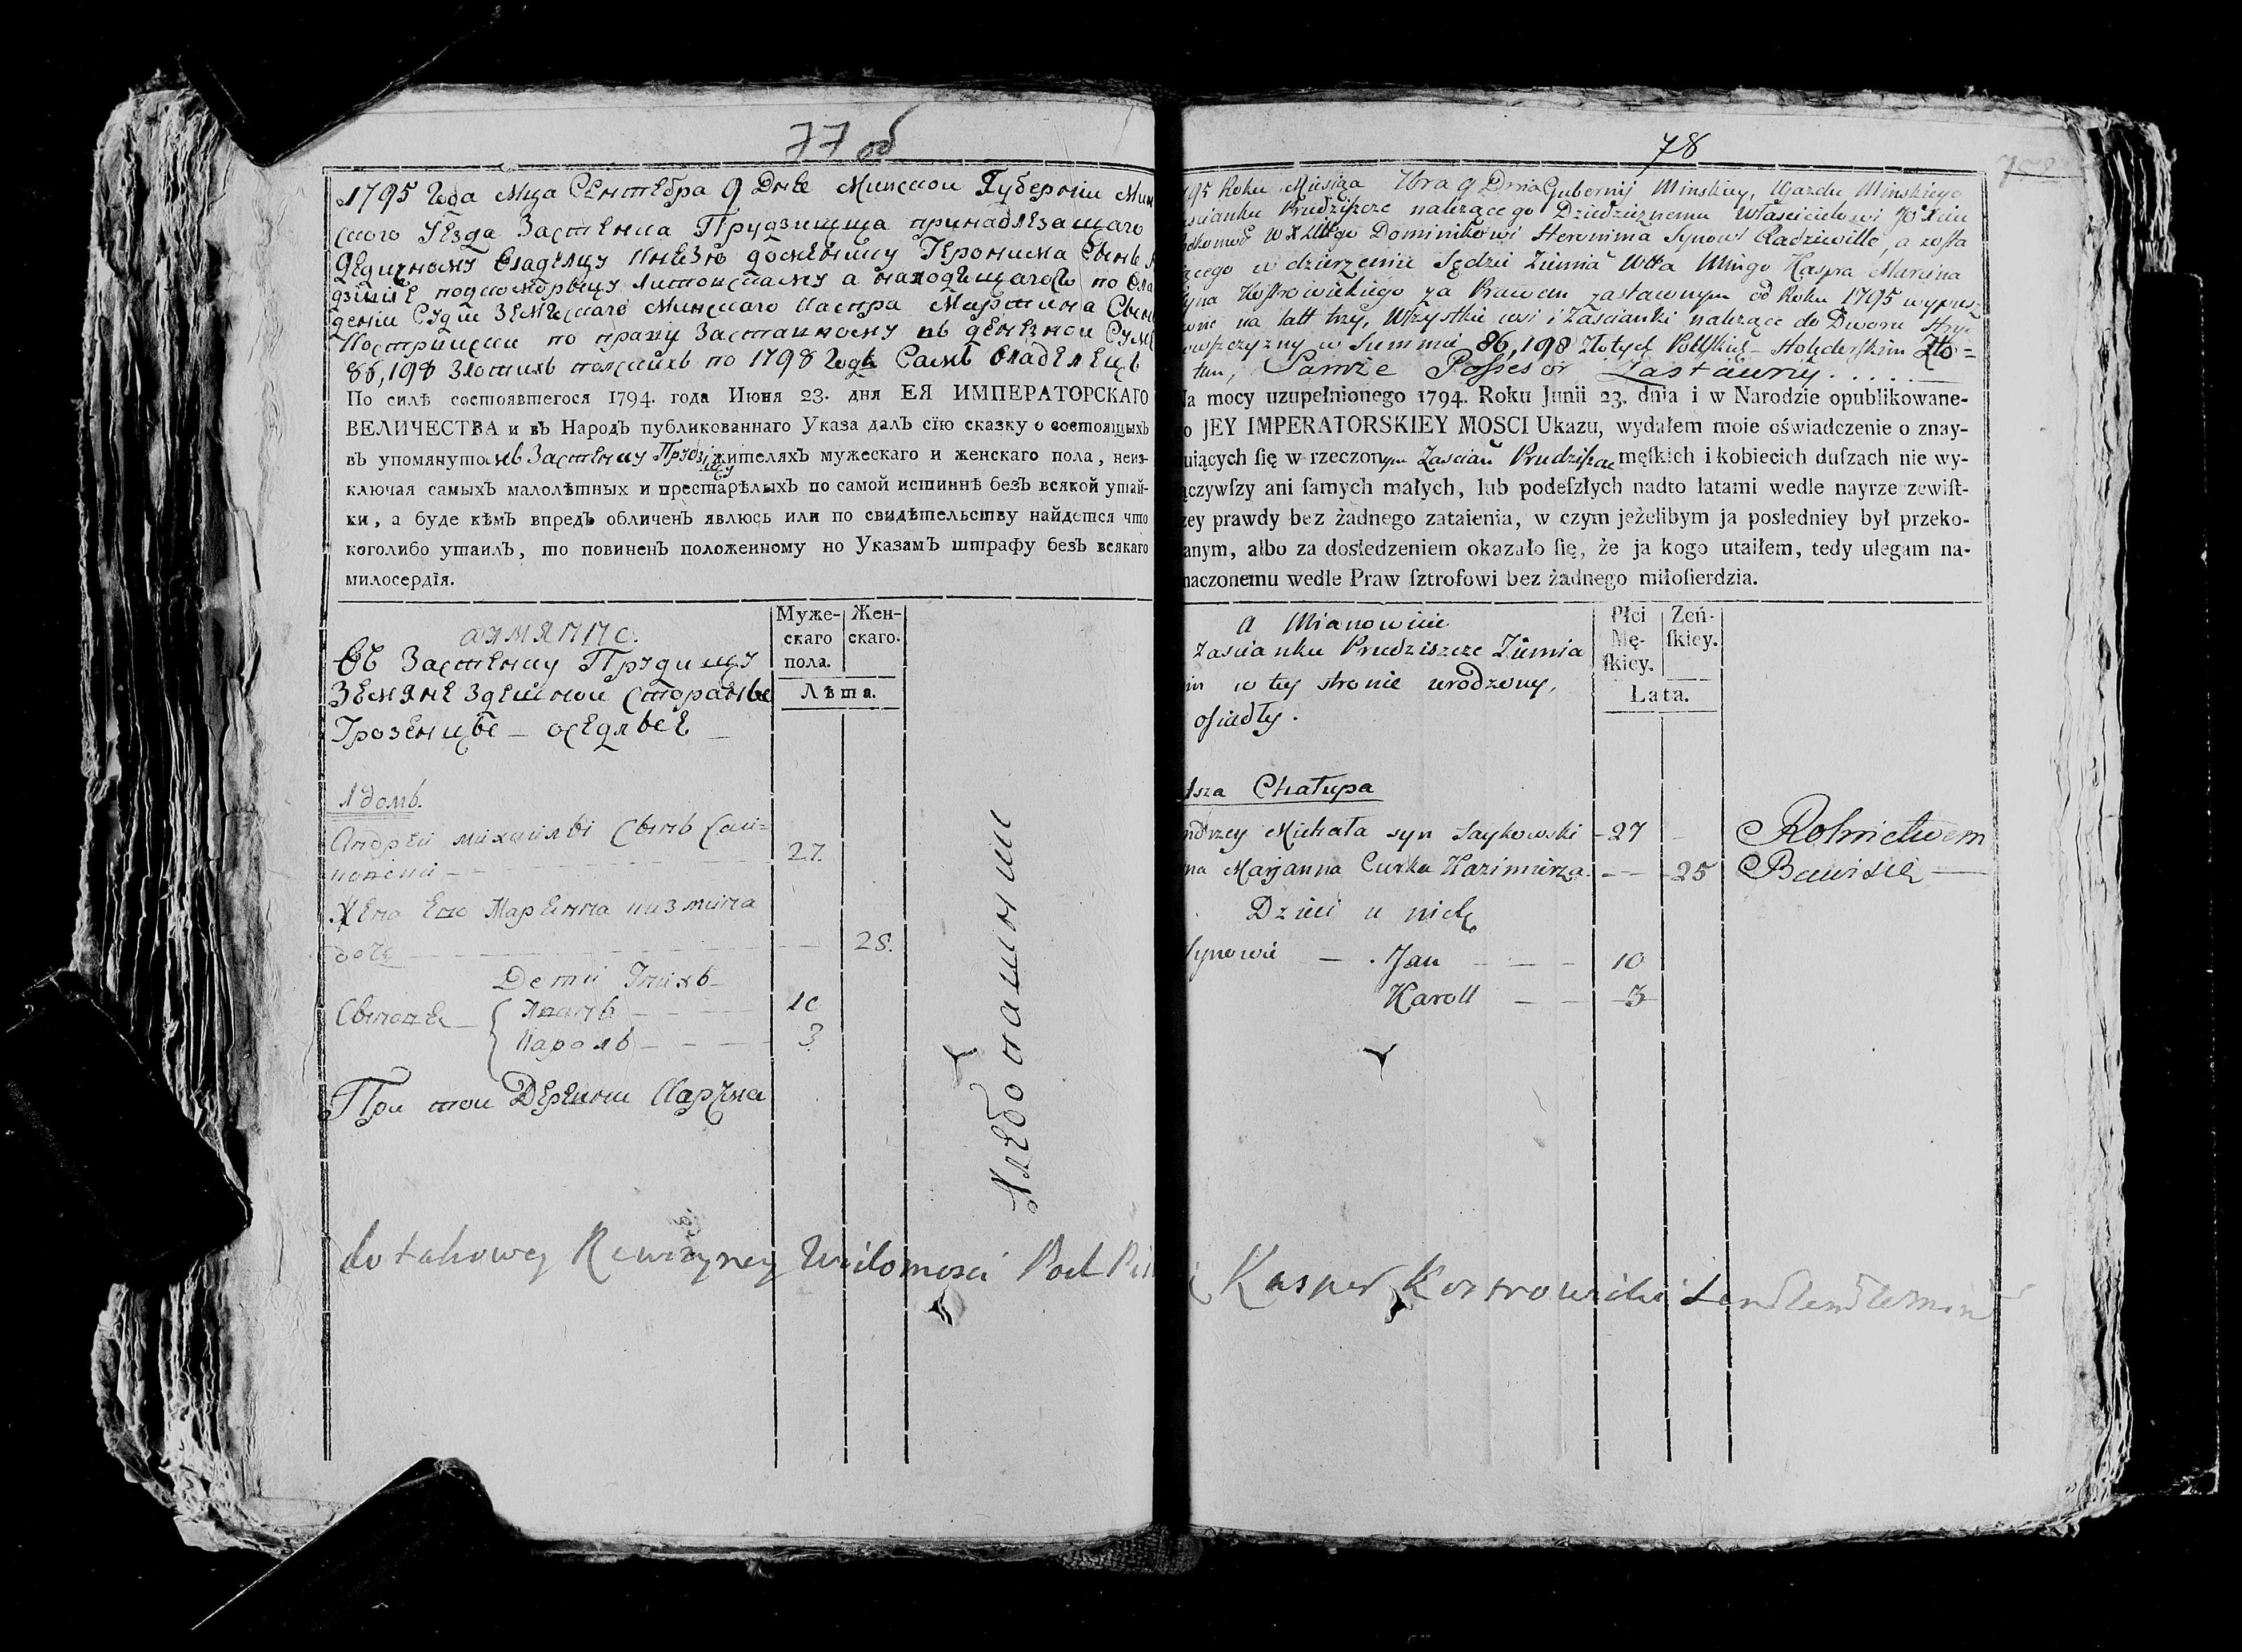 77 об
1795 года Мца Сентебра 9 Дня Минской Губерніи Мин
ского Уезда Застенка Прудзищща принадлежащаго
Дедичному Владелцу Князю Доменику Геронима Сыну
подкоморыцу Литовскому а находящагось по вла
деніи Судіи Земескаго Минскаго Каспра Мартина Сын
Костровиски по праву Заставному въ денежной Суме
86,198 Злотихъ полскихъ по 1798 Года Самъ Владелецъ
По силѣ состоявшегося 1794. года Июня 23. дня ЕЯ ИМПЕРАТОРСКАГО
ВЕЛИЧЕСТВА и въ Народъ публикованнаго Указа далъ сїю сказку о состоящыхъ
въ упомянутомъ Застенку Прудзищу жителяхъ мужескаго и женскаго пола, неиз-
ключая самыхъ малолѣтныхъ и престарѣлыхъ по самой истиннѣ безъ всякой утай-
ки, а буде кѣмъ впредь обличенъ явлюсь или по свидѣтельству найдется что
коголибо утаилъ, то повиненъ положенному но Указамъ штрафу безъ всякаго
милосердїя.
Муже-
скаго
пола.
Жен-
скаго.
Лѣта.
Въ Застенку Прудищу
Земяне здешнои стораны
уроженцы — оседлые
1 домъ.
Андреи михаилы Сынъ Сай-
ковски — 27.
Жена Его Марянна казмира
дочь — 25.
Дети У нихъ
Сыновья { Янъ — 10
Кароль — 3
При тои Деревни Карчма
Хлебопашини
do takowey Rewizyney Wiadomosci Pod Pis
78
795 Roku Miesiąca 7bra 9 Dnia Gubernij Minskiey, Ujazdu Minskiego
Zascianku Prudziszcze należącego Dziedzicznemu Właścicielowi JO Xciu
Podkomo W X Littgo Dominikowi Heronima Synowi Radziwille, a zosta
iącego w dzierzenie Sędzi Ziemia Wtta Mingo Kaspra Marcina
Syna Kostrowickiego za Prawem zastawnym od Roku 1795 wypusz
czone na latt trzy, Wszystkie wsi i Zascianki należące do Dworu
w Summie 86,198 Złotych Polskich Holęderskim Zło=
tem, Tamże Possesor Zastawny.....
Na mocy uzupełnionego 1794. Roku Junii 23. dnia i w Narodzie opublikowane-
go JEY IMPERATORSKIEY MOSCI Ukazu, wydałem moie oświadczenie o znay-
duiących ſię w rzeczonym Zascian Prudziszcze męſkich i kobiecich duſzach nie wy-
łączywſzy ani ſamych małych, lub podeſzłych nadto latami wedle nayrzezewiſt-
szey prawdy bez żadnego zataienia, w czym jeżelibym ja posledniey był przeko-
nanym, albo za dosledzeniem okazało ſię, że ja kogo utaiłem, tedy ulegam na-
znaczonemu wedle Praw ſztrofowi bez żadnego miłoſierdzia.
A Mianowicie
Zascianku Prudziszcze Ziemia
nin w tey stronie urodzony,
osiadły.
Płci
Mę-
ſkiey.
Zeń-
ſkiey.
Lata.
1sza Chałupa
Andrzey Michała syn Saykowski — 27 — Rolnictwem
Żona Marjanna Curka Kazimierza — 25 Bawi się
Dzieci u nich
Synowie — Jan — 10
Karoll — 3
Kasper Kostrowicki